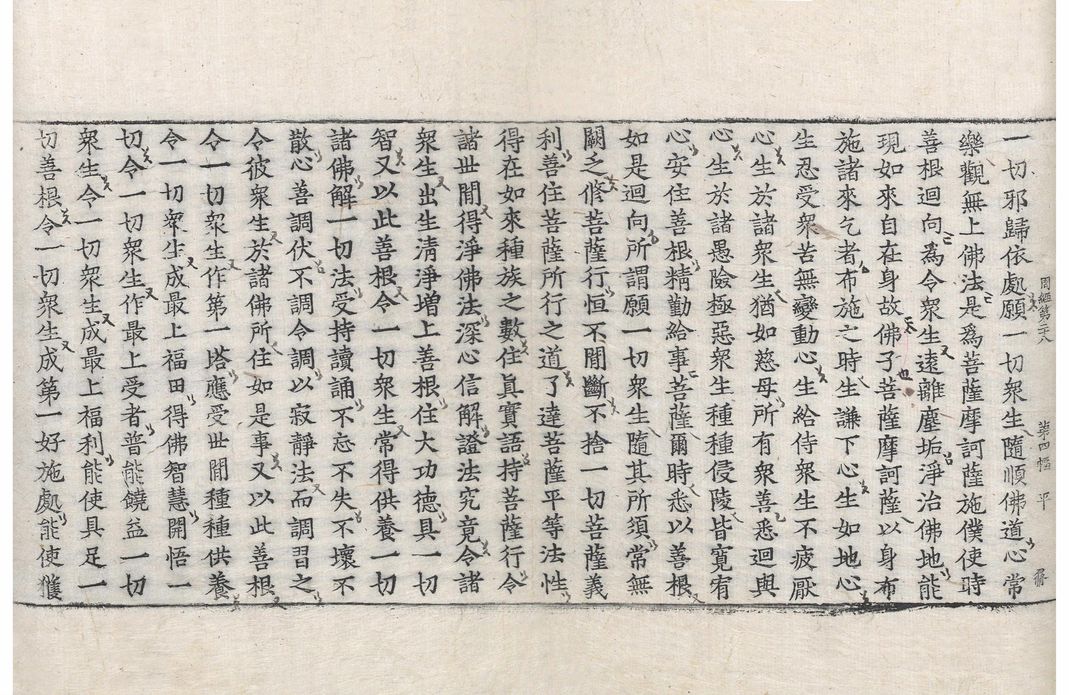 周經第二十八　第四幅　平
一切邪歸依處願一切衆生隨順佛道心常
樂觀無上佛法是爲菩薩摩訶薩施僕使時
善根迴向爲令衆生遠離塵垢淨治佛地能
現如來自在身故佛子菩薩摩訶薩以身布
施諸來乞者布施之時生謙下心生如地心
生忍受衆苦無變動心生給侍衆生不疲厭
心生於諸衆生猶如慈母所有衆善悉迴與
心生於諸愚險極惡衆生種種侵陵皆寬宥
心安住善根精勤給事菩薩爾時悉以善根
如是迴向所謂願一切衆生隨其所須常無
闕乏修菩薩行恒不閒斷不捨一切菩薩義
利善住菩薩所行之道了達菩薩平等法性
得在如來種族之數住眞實語持菩薩行令
諸世閒得淨佛法深心信解證法究竟令諸
衆生出生清淨增上善根住大功德具一切
智又以此善根令一切衆生常得供養一切
諸佛解一切法受持讀誦不忘不失不壞不
散心善調伏不調令調以寂靜法而調習之
令彼衆生於諸佛所住如是事又以此善根
令一切衆生作第一塔應受世閒種種供養
令一切衆生成最上福田得佛智慧開悟一
切令一切衆生作最上受者普能饒益一切
衆生令一切衆生成最上福利能使具足一
切善根令一切衆生成第一好施處能使獲